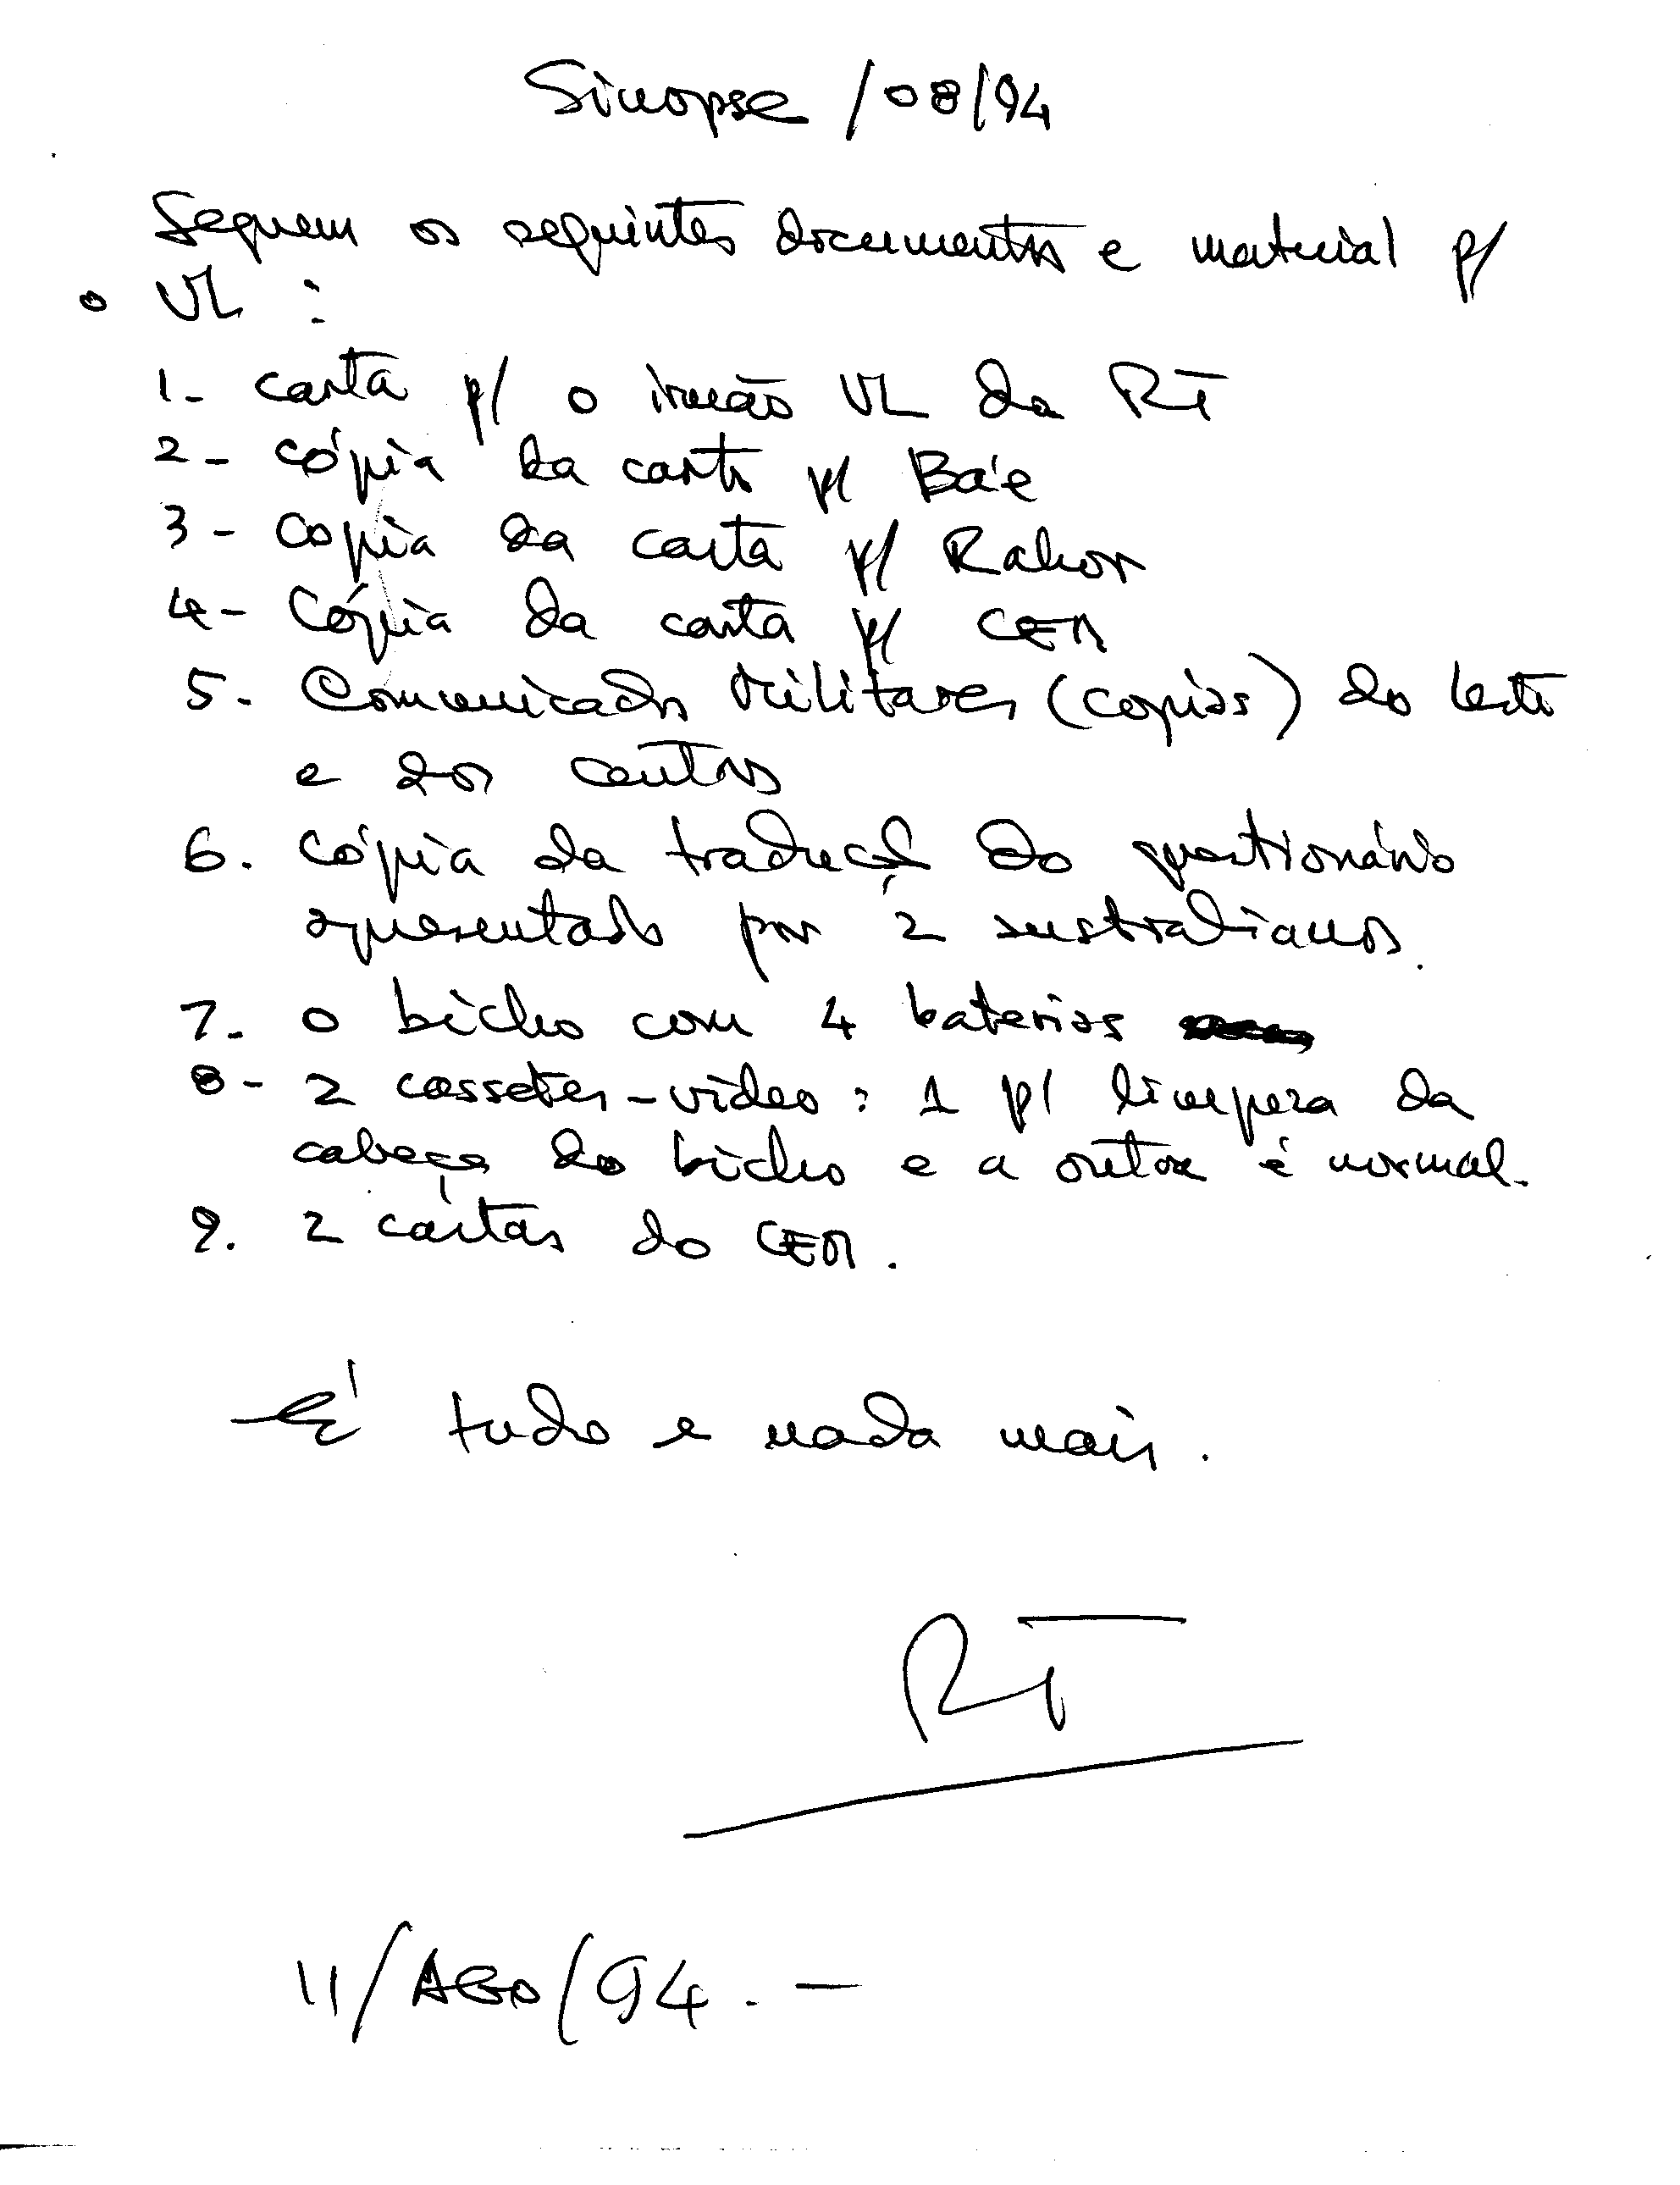 Sinopse /08/94
Seguem os seguintes documentos e material p/
o VL :
1- carta p/ o irmão VL da RT
2- cópia da carta p/ Bá'e
3- copia da carta p/ Rahon
4- Cópia da carta p/ CEM
5. Comunicados Militares (copias) do leste
e dos centros
6. cópia da tradução do questionário
apresentado por 2 australianos.
7. o bicho com 4 baterias
8- 2 cassetes-video : 1 p/ limpeza da
cabeça do bicho e a outra é normal.
9. 2 cartas do CEM.
É tudo e nada mais.
RT
11/AGO/94.-